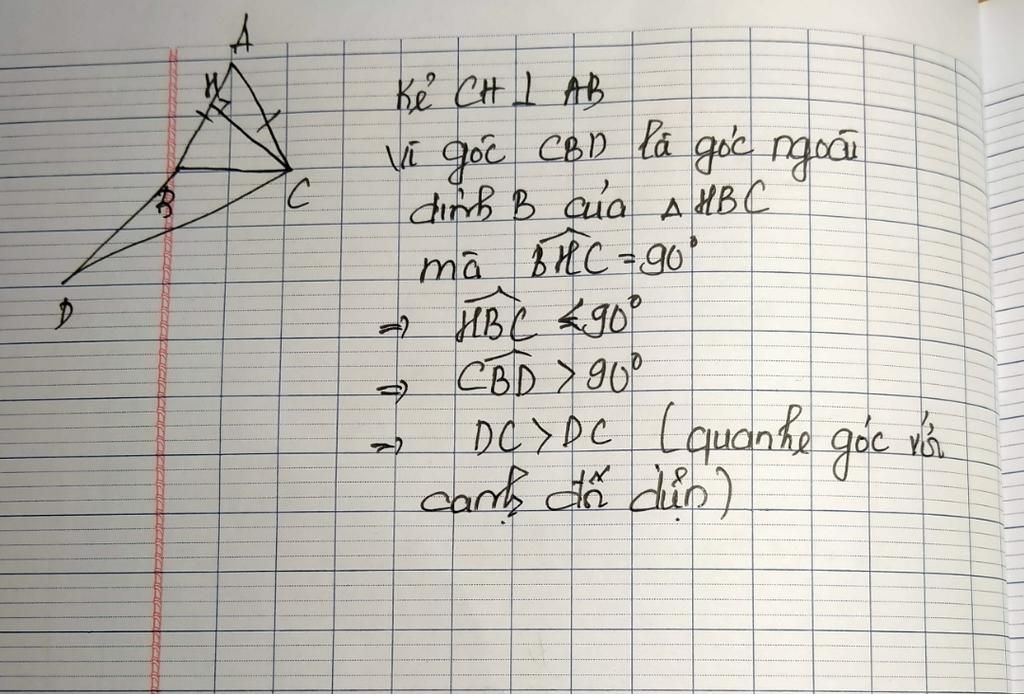 A
H
B
C
D
Kẻ CH ⊥ AB
Vì góc CBD là góc ngoài
đỉnh B của △ HBC
mà BHC = 90°
⇒ HBC < 90°
⇒ CBD > 90°
⇒ DC > DC (quan hệ góc với
cạnh đối diện)